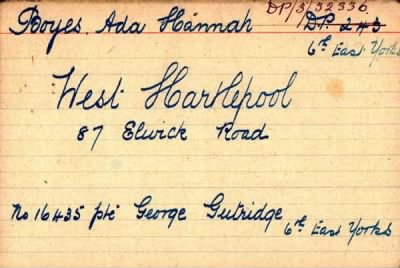 Boyes, Ada Hannah DP/3/32336.
DP. 243
6th East Yorks
West Hartlepool
87 Elwick Road
No 16435 pte George Gutridge 6th East Yorks